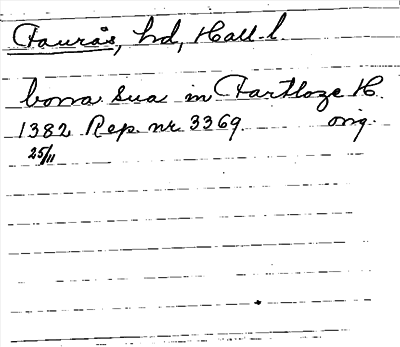 Faurås, hd, Hall. l.
bona sua in Fartloze H.
1382 Rep. nr. 3369. orig.
25/11